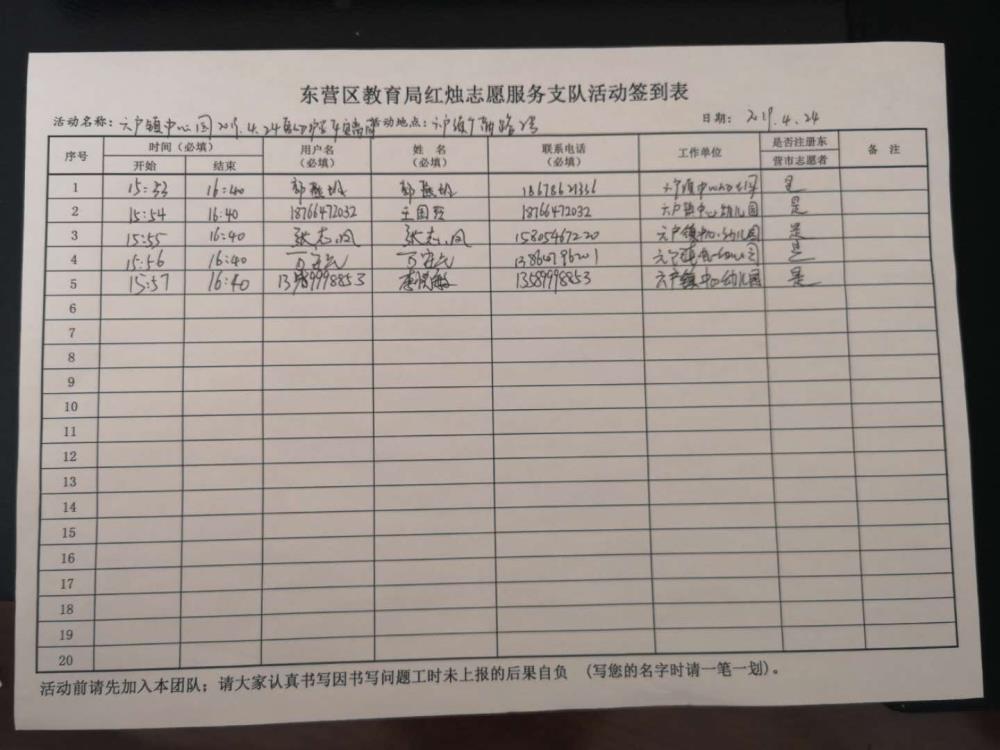 东营区教育局红烛志愿服务支队活动签到表
活动名称：六户镇中心园2019.4.24 活动地点：六户镇 日期：2019.4.24
序号 时间（必填） 用户名（必填） 姓 名（必填） 联系电话（必填） 工作单位 是否注册东营市志愿者 备 注
开始 结束
1 15:53 16:40 18678621366 六户镇中心幼儿园 是
2 15:54 16:40 18766472032 王国 18766472032 六户镇中心幼儿园 是
3 15:55 16:40 张志凤 张志凤 15805467220 六户镇中心幼儿园 是
4 15:56 16:40 六户镇中心幼儿园 是
5 15:57 16:40 13589998853 李悦敏 13589998853 六户镇中心幼儿园 是
6
7
8
9
10
11
12
13
14
15
16
17
18
19
20
活动前请先加入本团队；请大家认真书写因书写问题工时未上报的后果自负 （写您的名字时请一笔一划）。